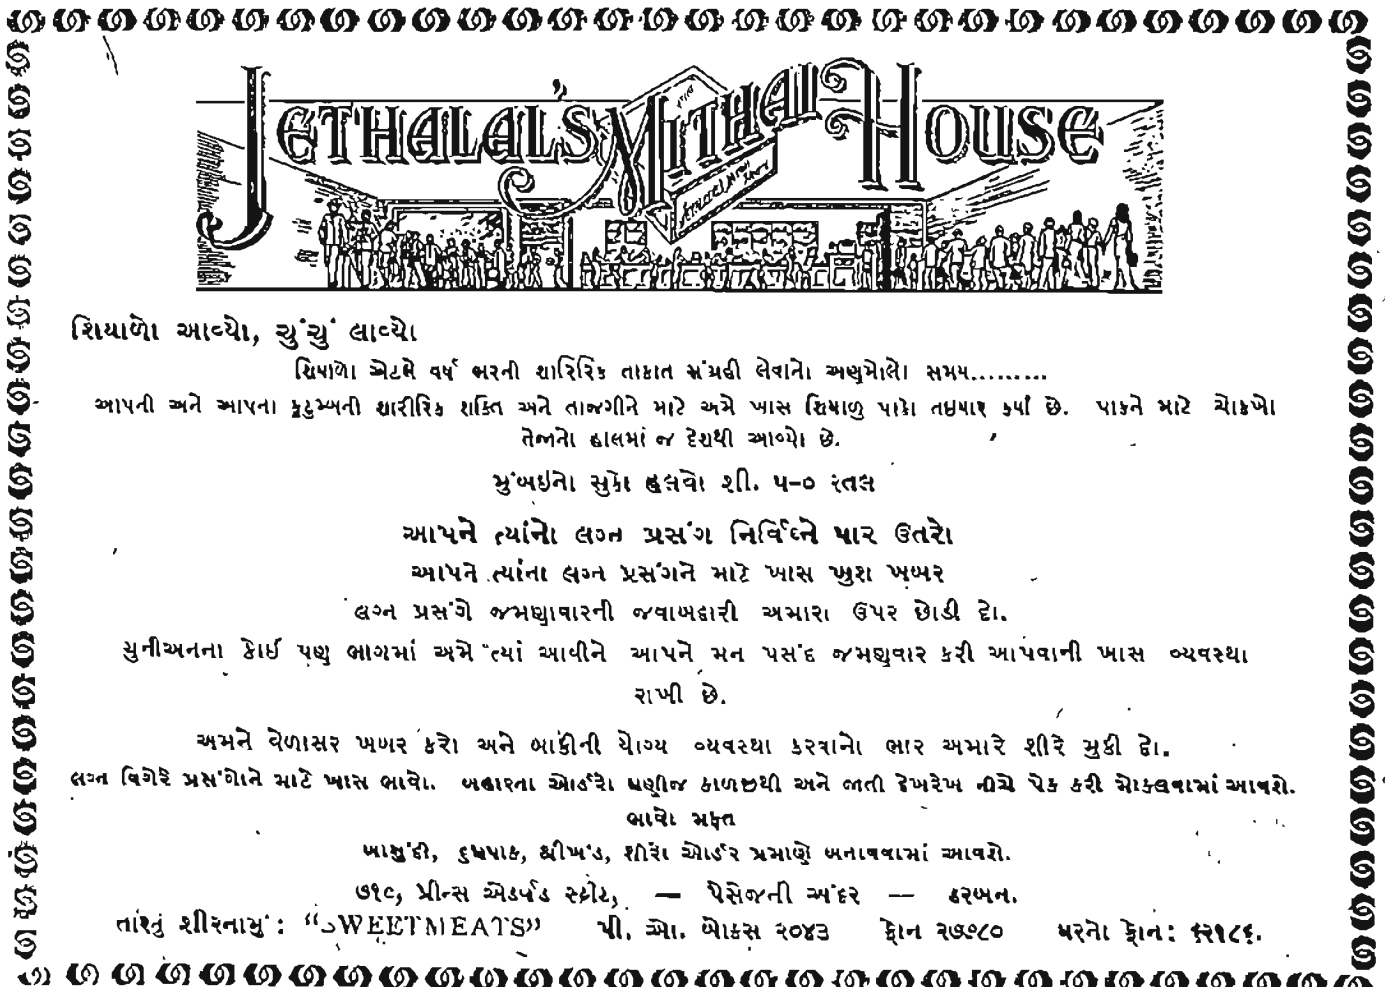 JETHALAL'S MITHAI HOUSE
શિયાળો આવ્યો, ચુંચું લાવ્યો
શિયાળો એટલે વર્ષ ભરની શારિરિક તાકાત સંગ્રહી લેવાનો અણમોલો સમય.........
આપની અને આપના કુટુમ્બની શારીરિક શક્તિ અને તાજગીને માટે અમે ખાસ શિયાળુ પાકો તઇયાર કર્યા છે. પાકને માટે ચોકખો
તેજાનો હાલમાં જ દેશથી આવ્યો છે.
મુંબઇનો સુકો હલવો શી. ૫-૦ રતલ
આપને ત્યાંનો લગ્ન પ્રસંગ નિર્વિઘ્ને પાર ઉતરો
આપને ત્યાંના લગ્ન પ્રસંગને માટે ખાસ ખુશ ખબર
લગ્ન પ્રસંગે જમણવારની જવાબદારી અમારા ઉપર છોડી દો.
યુનીઅનના કોઈ પણ ભાગમાં અમે ત્યાં આવીને આપને મન પસંદ જમણવાર કરી આપવાની ખાસ વ્યવસ્થા
રાખી છે.
અમને વેળાસર ખબર કરો અને બાકીની યોગ્ય વ્યવસ્થા કરવાનો ભાર અમારે શીરે મુકી દો.
લગ્ન વિગેરે પ્રસંગોને માટે ખાસ ભાવો. બહારના ઓર્ડરો ઘણીજ કાળજીથી અને જાતી દેખરેખ નીચે પેક કરી મોકલવામાં આવશે.
ભાવો મફત
બાસુંદી, દુધપાક, શ્રીખંડ, શીરો ઓર્ડર પ્રમાણે બનાવવામાં આવશે.
૭૧૯, પ્રીન્સ એડર્વડ સ્ટ્રીટ, — પેસેજની અંદર — ડરબન.
તારનું શીરનામું : “SWEETMEATS” પી. ઓ. બોકસ ૨૦૪૩ ફોન ૨૭૭૮૦ ઘરનો ફોન: ૬૨૧૮૬.